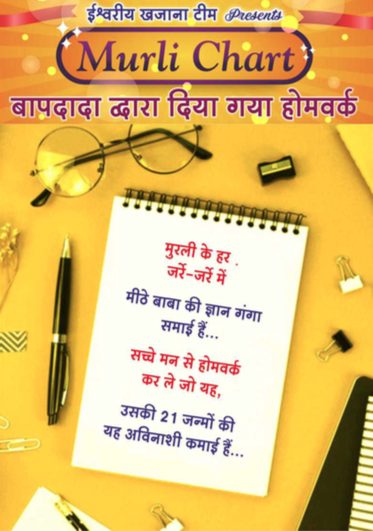 ईश्वरीय खजाना टीम Presents
Murli Chart
बापदादा द्वारा दिया गया होमवर्क
मुरली के हर
जर्रे-जर्रे में
मीठे बाबा की ज्ञान गंगा
समाई हैं...
सच्चे मन से होमवर्क
कर ले जो यह,
उसकी 21 जन्मों की
यह अविनाशी कमाई हैं...